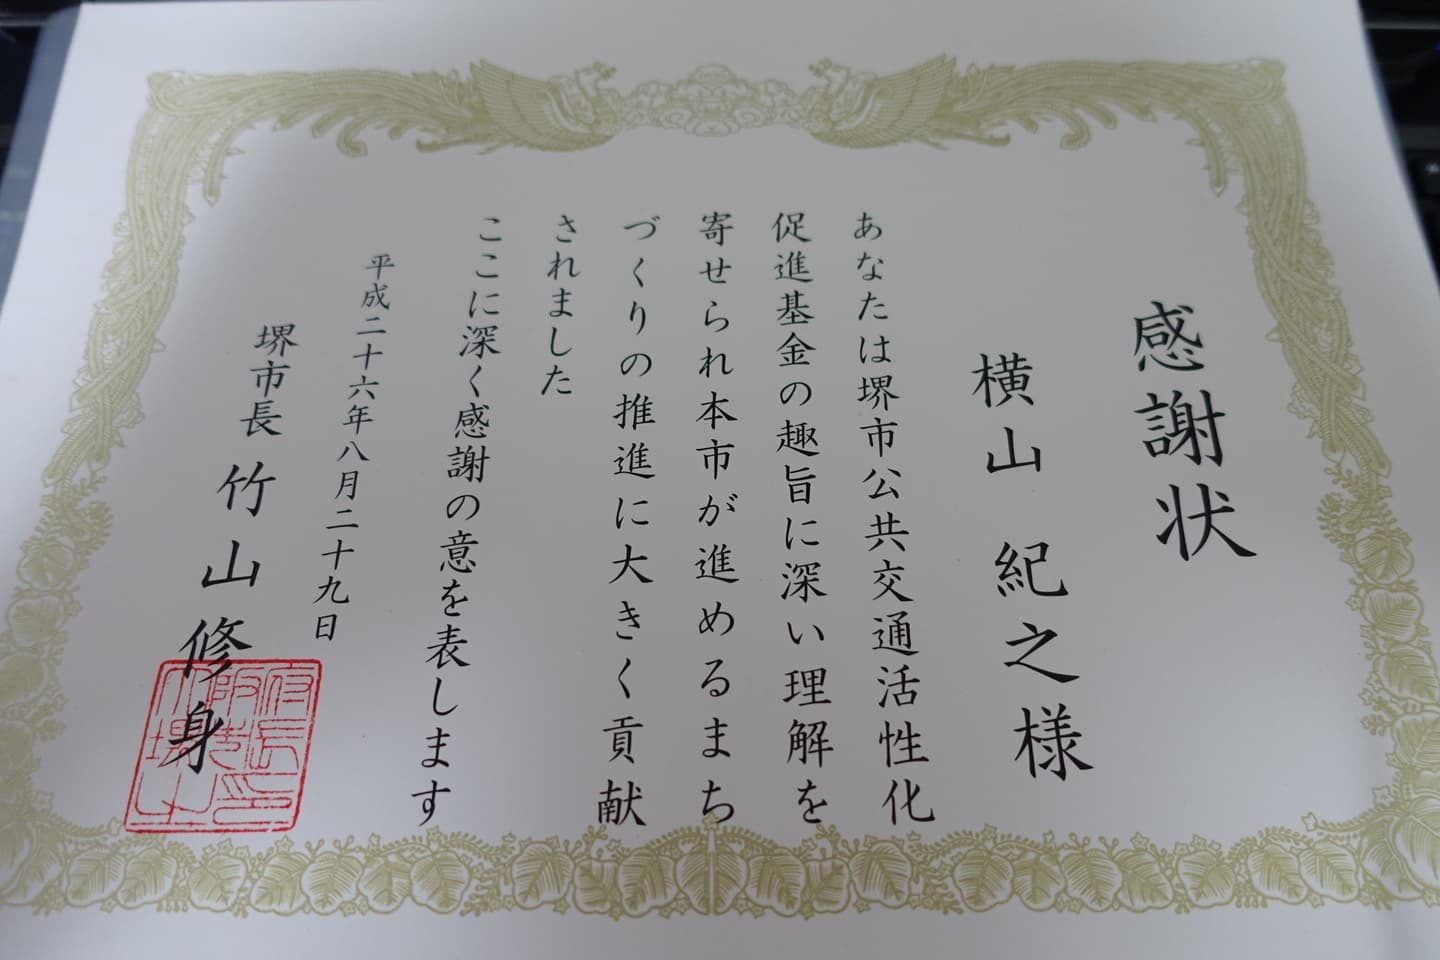 感謝状
横山 紀之様
あなたは堺市公共交通活性化
促進基金の趣旨に深い理解を
寄せられ本市が進めるまち
づくりの推進に大きく貢献
されました
ここに深く感謝の意を表します
平成二十六年八月二十九日
堺市長 竹山修身